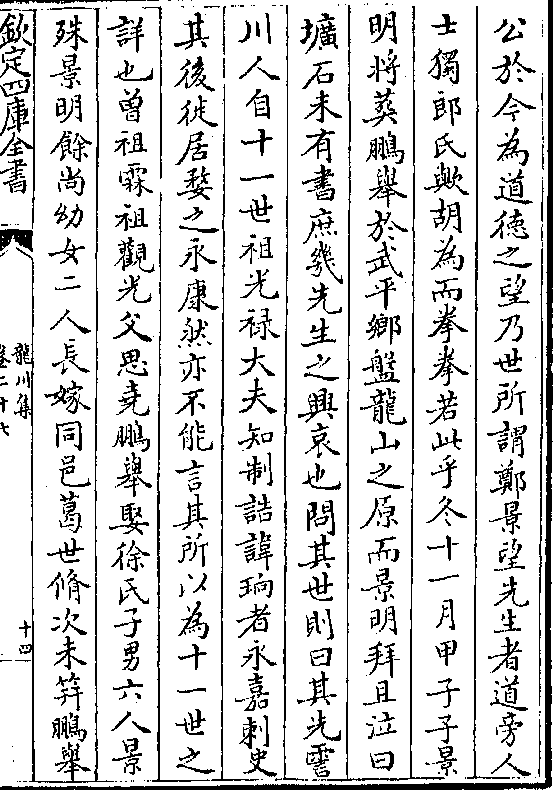 公於今為道德之望乃世所謂鄭景望先生者道旁人
士獨郎氏歟胡為而拳拳若此乎冬十一月甲子子景
明將葬鵬舉於武平鄉盤龍山之原而景明拜且泣曰
壙石未有書庶幾先生之興哀也問其世則曰其先霅
川人自十一世祖光禄大夫知制誥諱珦者永嘉刺史
其後徙居婺之永康然亦不能言其所以為十一世之
詳也曽祖霖祖觀光父思堯鵬舉娶徐氏子男六人景
殊景明餘尚幼女二人長嫁同邑葛世脩次未筓鵬舉
欽定四庫全書
龍川集
卷二十七
十四